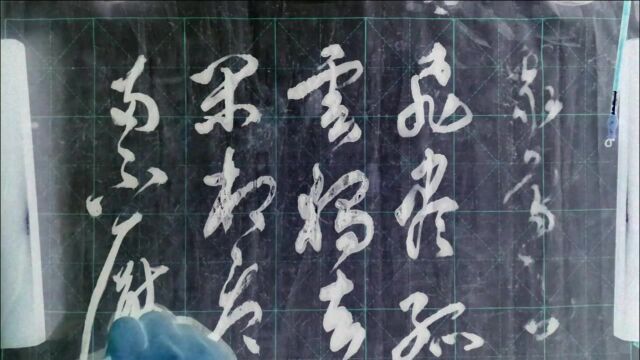 眾鳥高
飛盡孤
雲獨去
閑相看
兩不厭